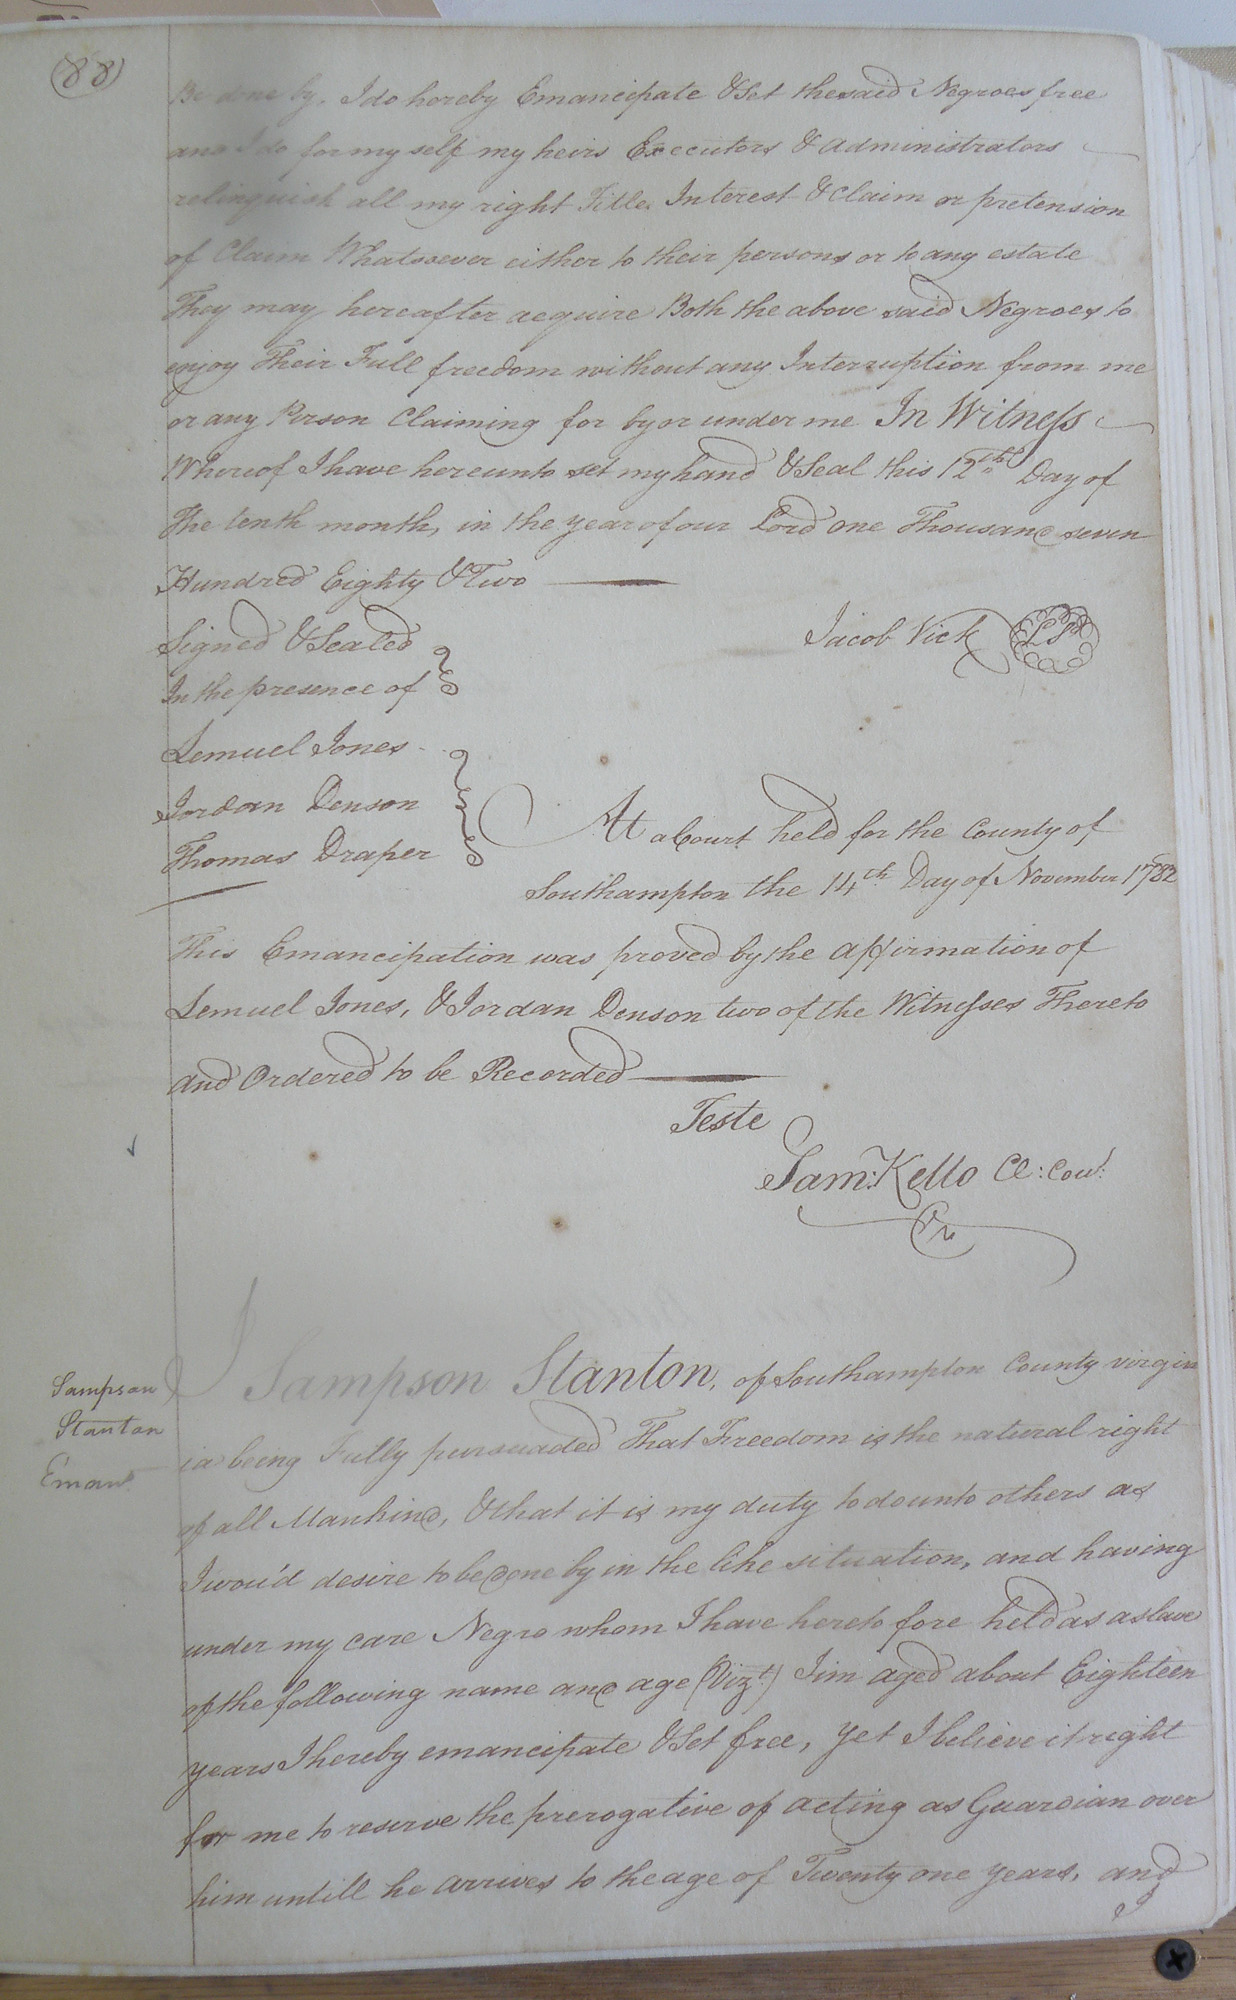 (88)
Be done by. I do hereby Emancipate & Set the said Negroes free
and I do for my self my heirs Executors & administrators
relinquish all my right Title Interest & Claim or pretension
of Claim Whatsoever either to their persons or to any estate
They may hereafter acquire Both the above said Negroes to
enjoy Their Full freedom without any Interruption from me
or any Person Claiming for by or under me In Witness
Whereof I have hereunto set my hand & Seal this 12th Day of
The tenth month, in the year of our Lord one Thousand seven
Hundred Eighty & Two
Jacob Vick LS
Signed & Sealed
In the presence of
Lemuel Jones
Jordan Denson
Thomas Draper
At a Court held for the County of
Southampton the 14th Day of November 1782
This Emancipation was proved by the affirmation of
Lemuel Jones, & Jordan Denson two of the Witnesses Thereto
and Ordered to be Recorded
Teste
Sam: Kello Cl: Cou:
Sampson
Stanton
Eman
I Sampson Stanton, of Southampton County virgin
ia being Fully pursuaded That Freedom is the natural right
of all Mankind, & that it is my duty to do unto others as
I wou'd desire to be done by in the like situation, and having
under my care Negro whom I have hereto fore held as a slave
of the following name and age (Vizt) Jim aged about Eighteen
years I hereby emancipate & Set free, yet I believe it right
for me to reserve the prerogative of acting as Guardian over
him untill he arrives to the age of Twenty one years, and
I